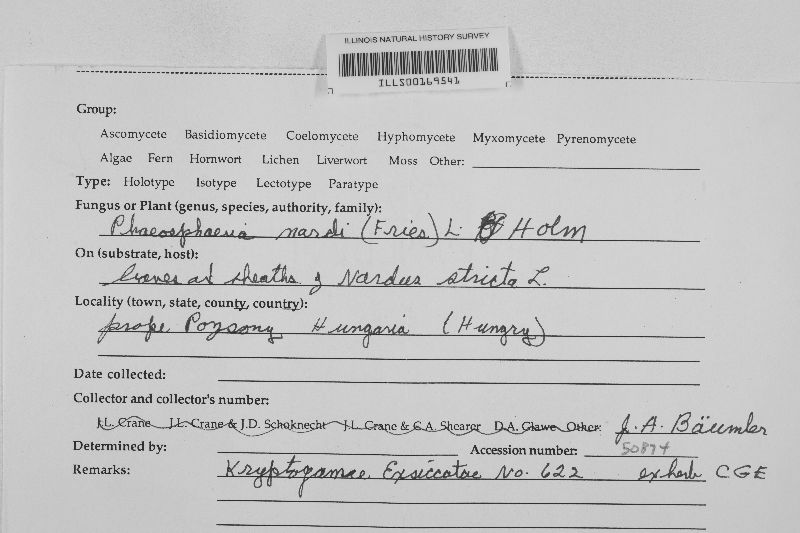 ILLINOIS NATURAL HISTORY SURVEY
ILLS00169541
Group:
Ascomycete Basidiomycete Coelomycete Hyphomycete Myxomycete Pyrenomycete
Algae Fern Hornwort Lichen Liverwort Moss Other:
Type: Holotype Isotype Lectotype Paratype
Fungus or Plant (genus, species, authority, family):
Phaeosphaeria nardi (Fries) L. Holm
On (substrate, host):
leaves and sheaths of Nardus stricta L.
Locality (town, state, county, country):
prope Pozsony Hungaria (Hungry)
Date collected:
Collector and collector's number:
J.L. Crane J.L. Crane & J.D. Schoknecht J.L. Crane & C.A. Shearer D.A. Glawe Other: J. A. Bäumler
Determined by: Accession number: 50874
Remarks: Kryptogamae Exsiccatae No. 622 ex herb CGE